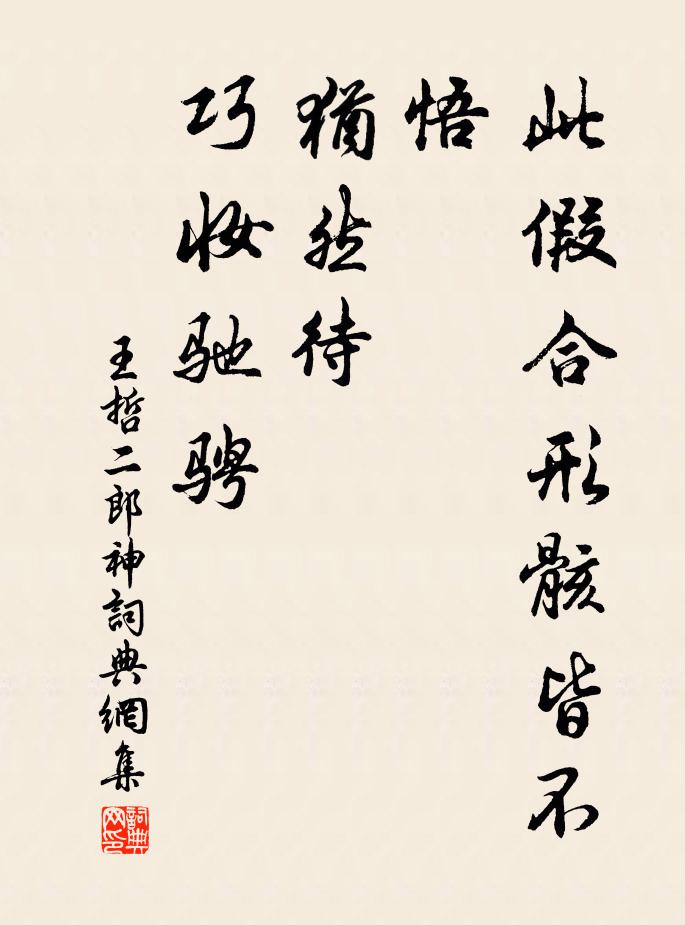 此假合形骸皆不
悟
猶然待
巧妝驰骋
王哲二郎神詞典網集
詞典网印